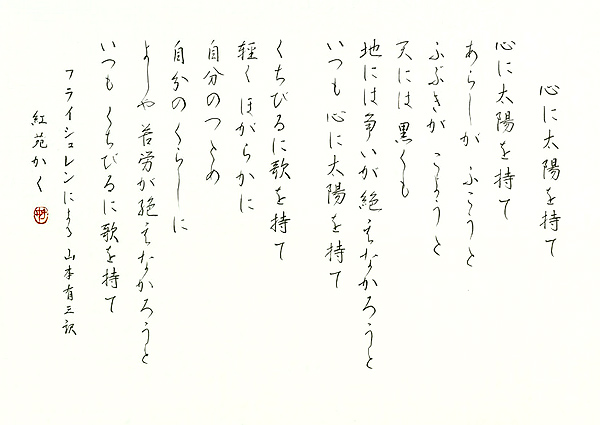 心に太陽を持て
心に太陽を持て
あらしが ふこうと
ふぶきが こようと
天には黒くも
地には争いが絶えなかろうと
いつも 心に太陽を持て
くちびるに歌を持て
軽く ほがらかに
自分のつとめ
自分のくらしに
よしや苦労が絶えなかろうと
いつも くちびるに歌を持て
フライシュレンによる 山本有三訳
紅苑かく